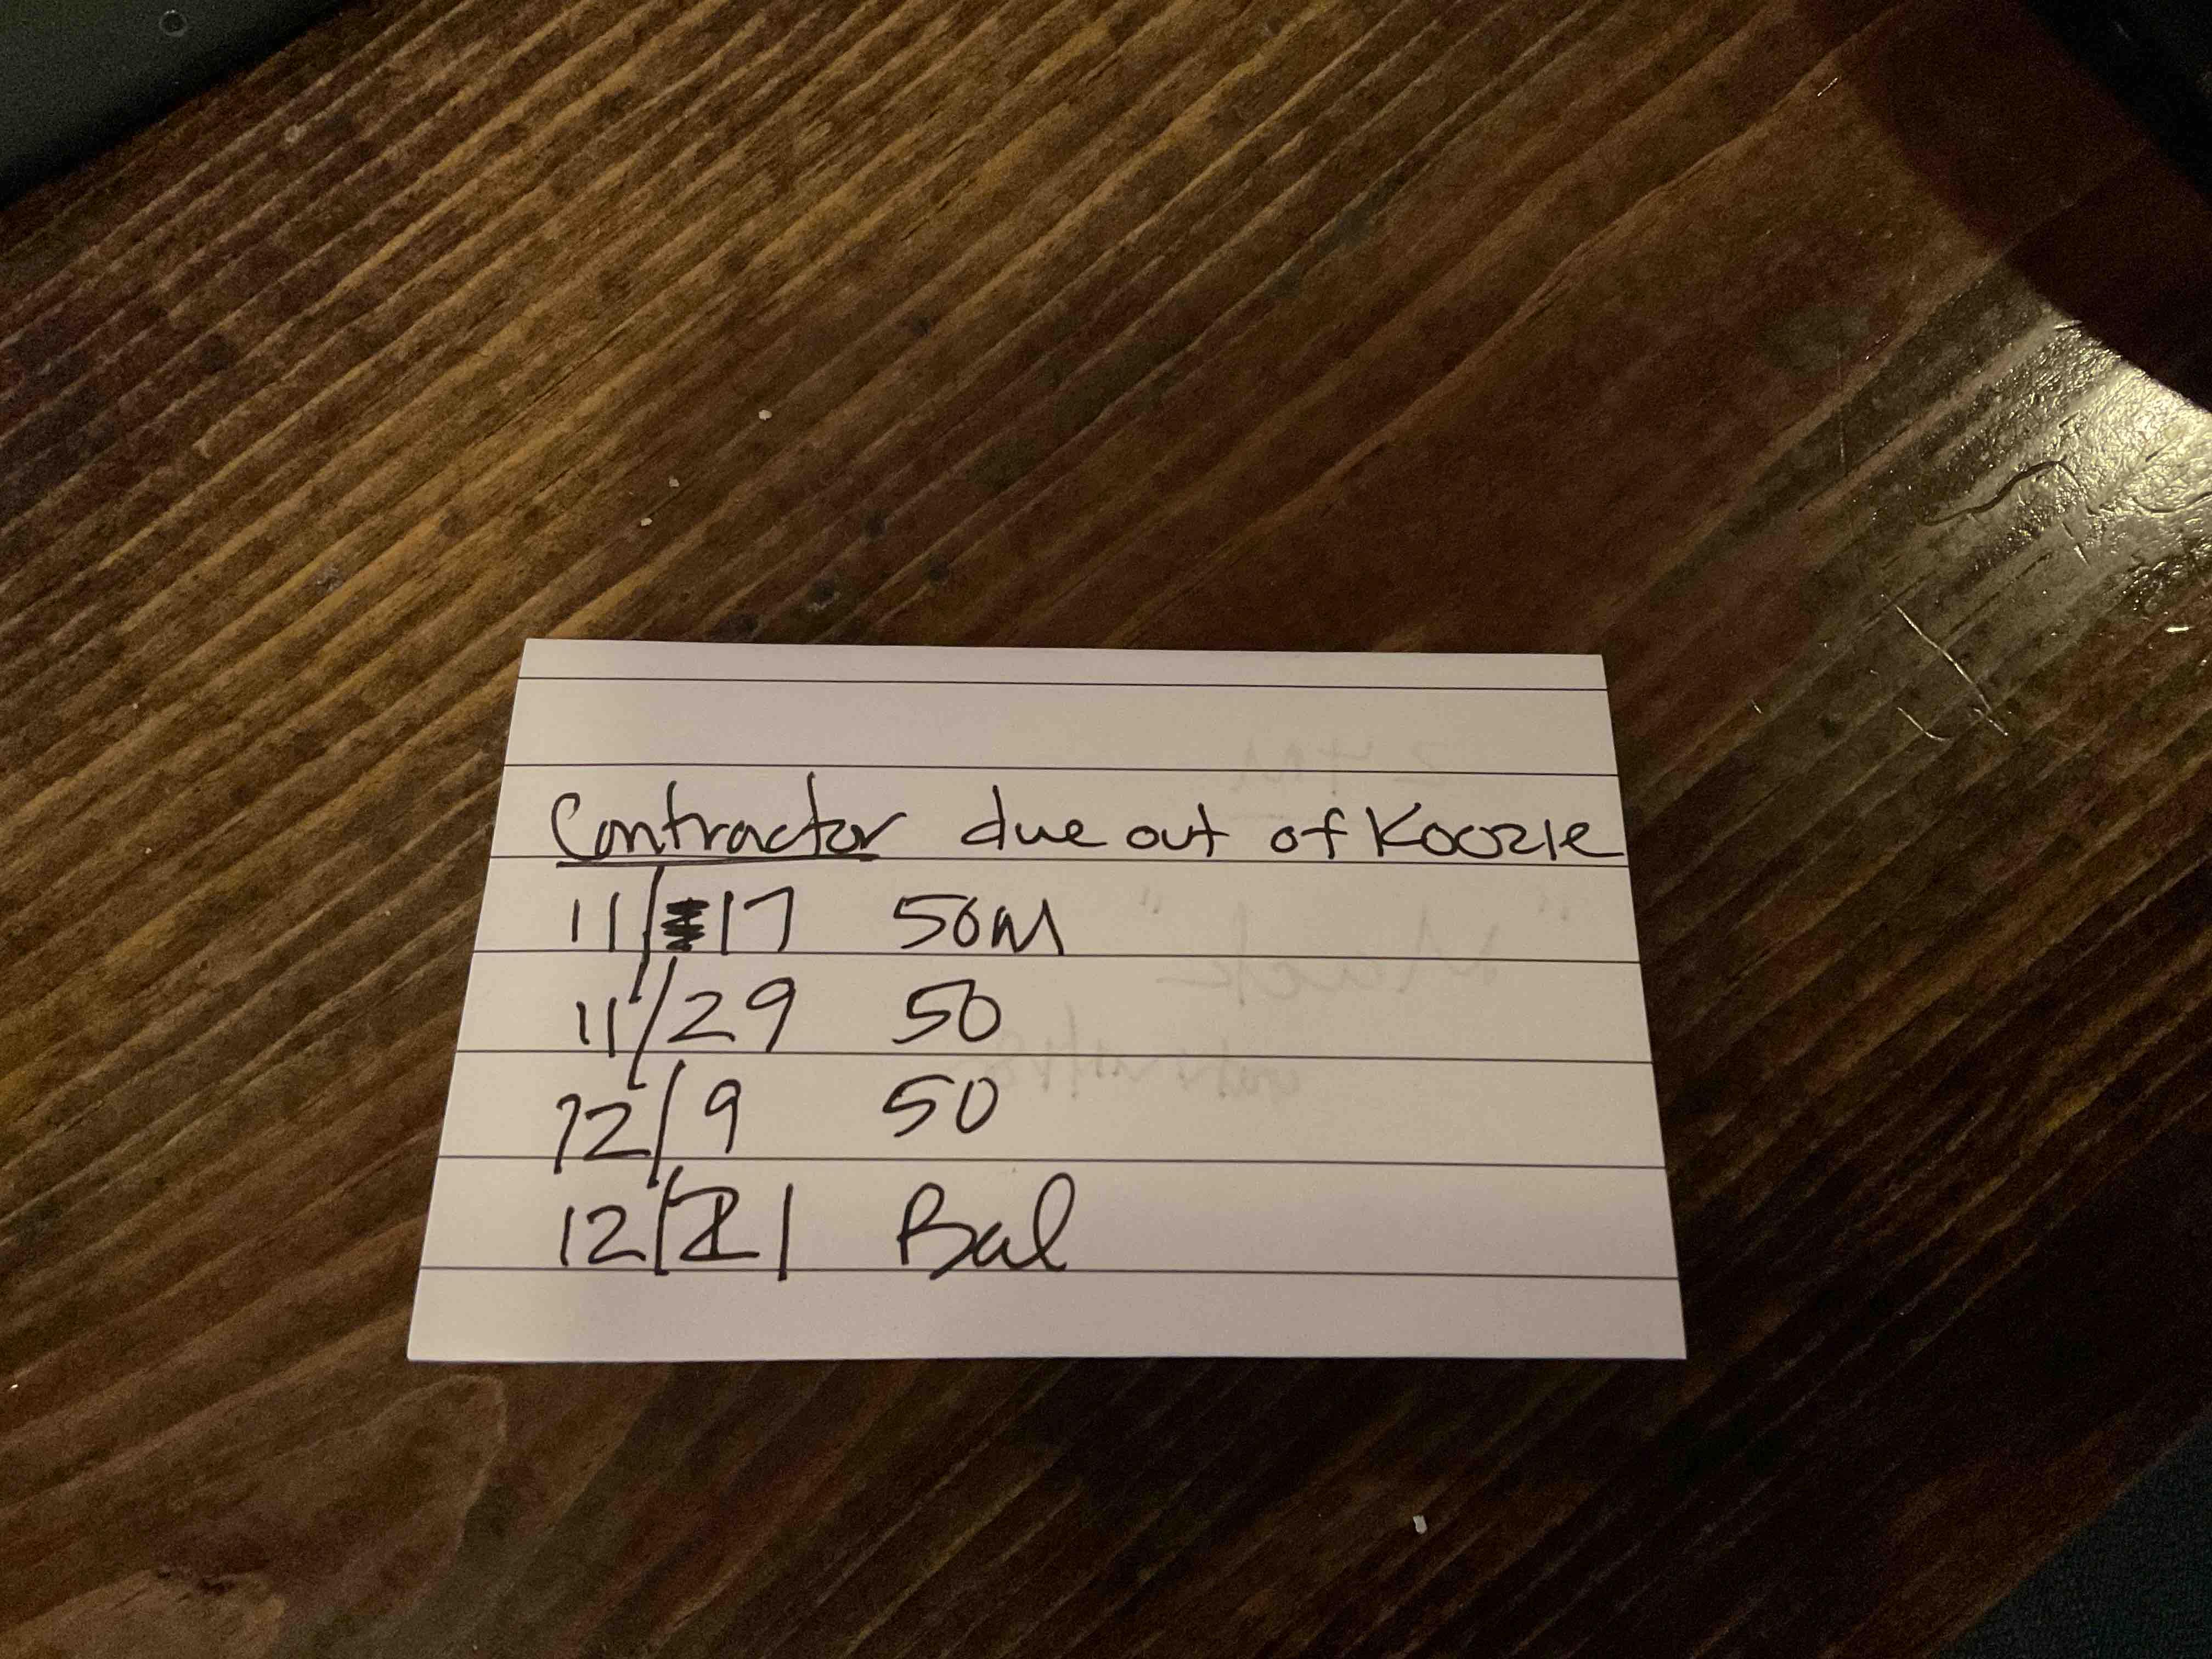 Contractor due out of Koozie
11/17 50M
11/29 50
12/9 50
12/21 Bal